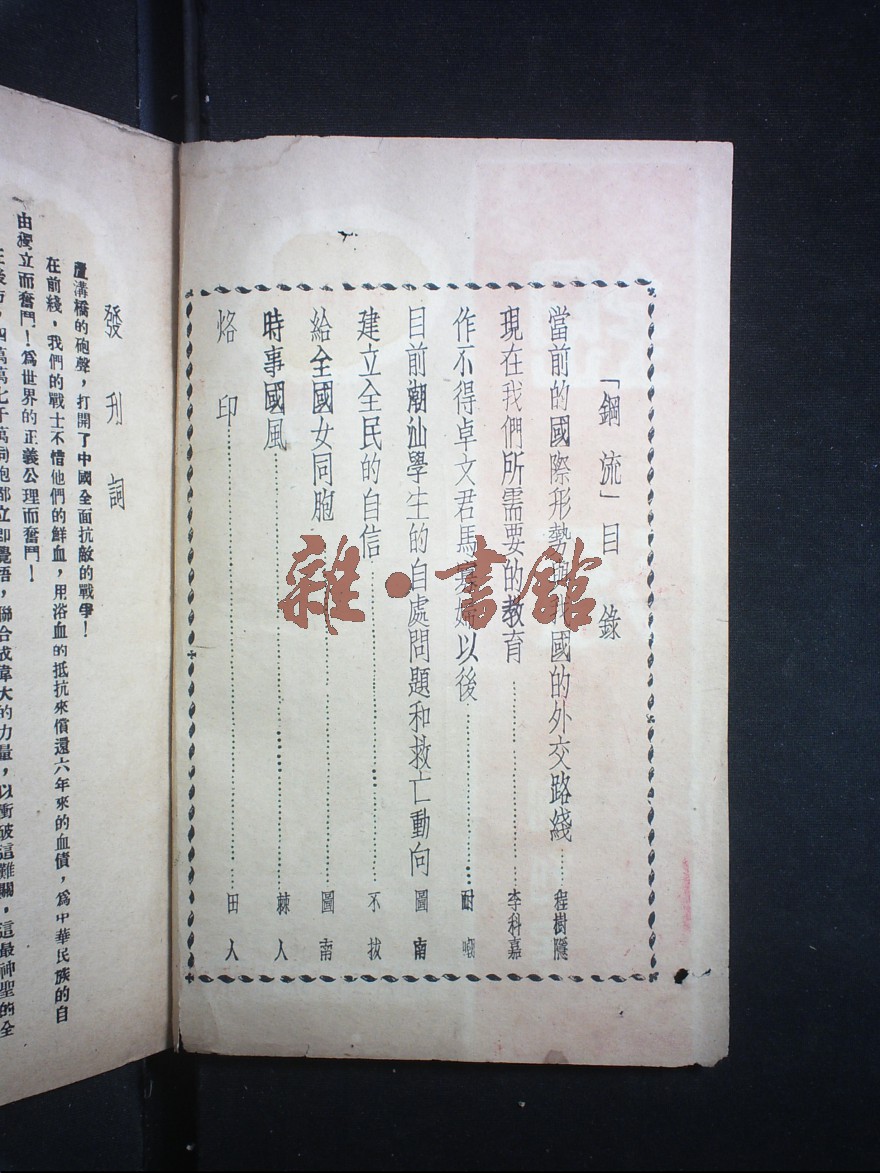 「鋼流」目錄
當前的國際形勢與我國的外交路綫……程樹隱
現在我們所需要的教育……李科嘉
作不得卓文君馬寡婦以後……耐
目前潮汕學生的自處問題和救亡動向 圖南
建立全民的自信……不拔
給全國女同胞……圖南
時事國風……棘人
烙印……田人
雜·書館
發刋詞
蘆溝橋的砲聲，打開了中國全面抗敵的戰爭！
在前綫，我們的戰士不惜他們的鮮血，用浴血的抵抗來償還六年來的血債，爲中華民族的自
由獨立而奮鬥！爲世界的正義公理而奮鬥！
在後方，四萬萬七千萬同胞都立卽覺悟，聯合成偉大的力量，以衝破這難關，這最神聖的全